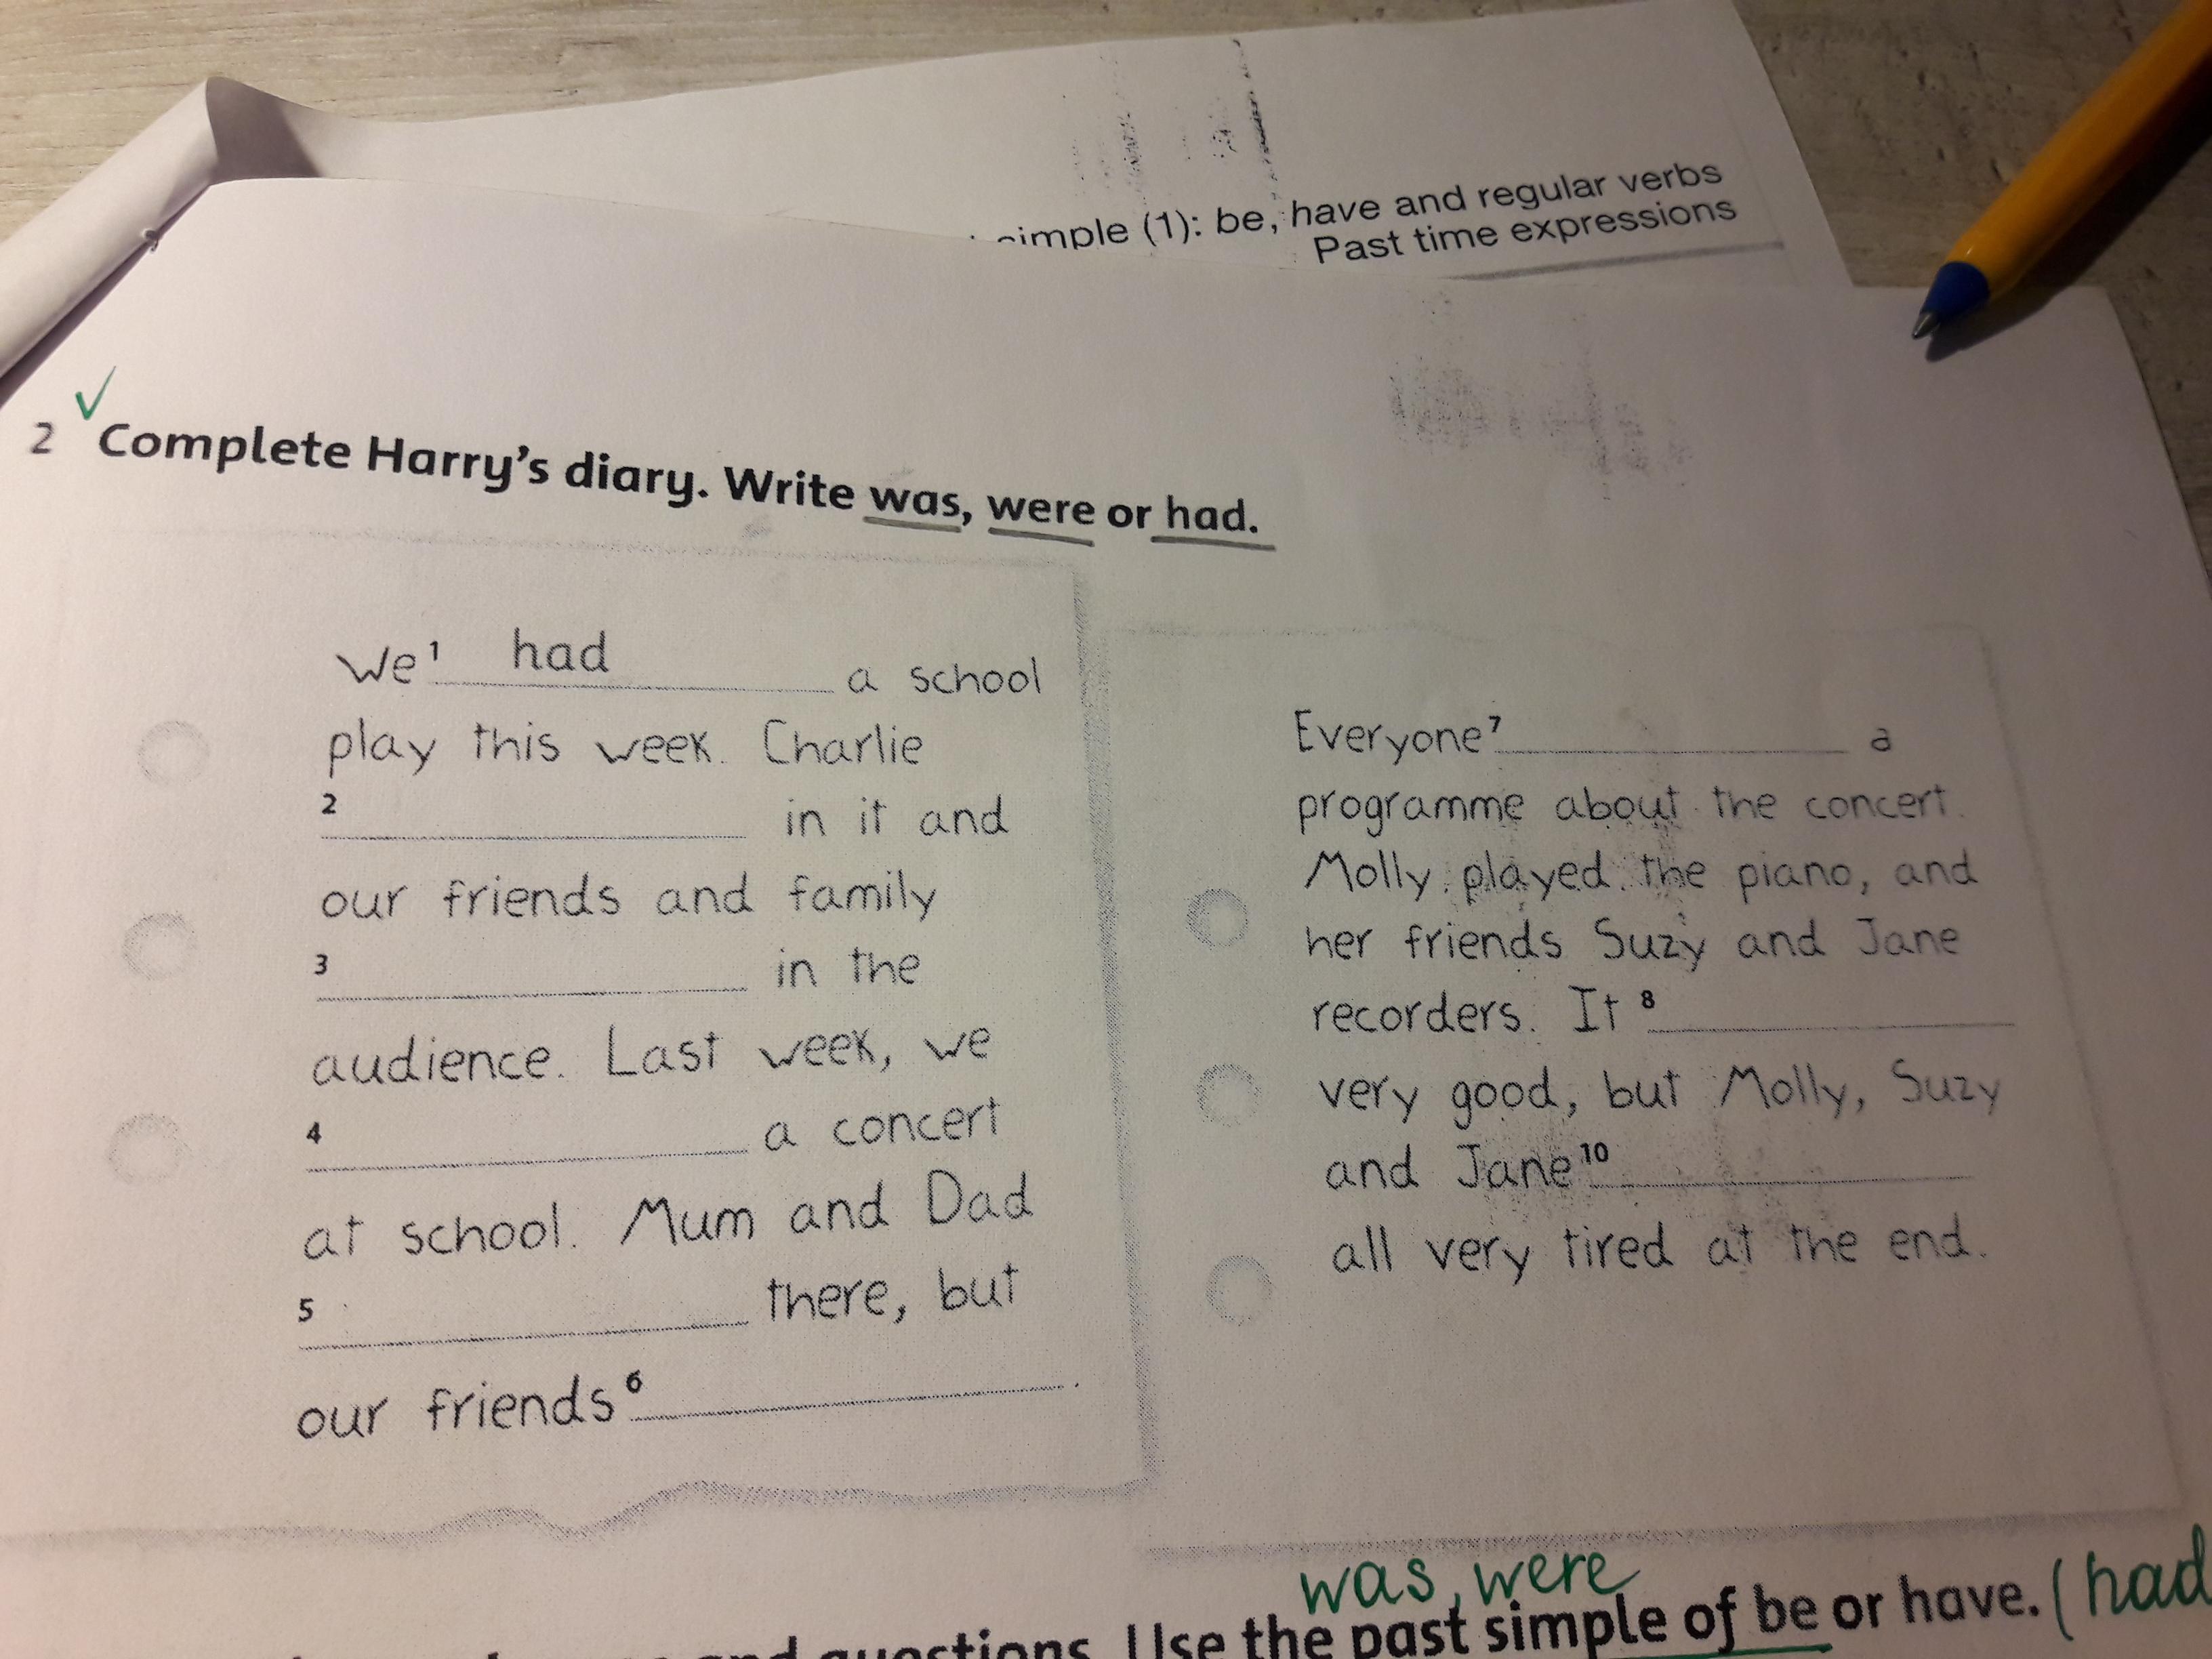 simple (1): be, have and regular verbs
Past time expressions
2 Complete Harry's diary. Write was, were or had.
We 1 had a school
play this week. Charlie
2 in it and
our friends and family
3 in the
audience. Last week, we
4 a concert
at school. Mum and Dad
5 there, but
our friends 6 .
Everyone 7 a
programme about the concert.
Molly played the piano, and
her friends Suzy and Jane
recorders. It 8
very good, but Molly, Suzy
and Jane 10
all very tired at the end.
was, were
and questions. Use the past simple of be or have. (had